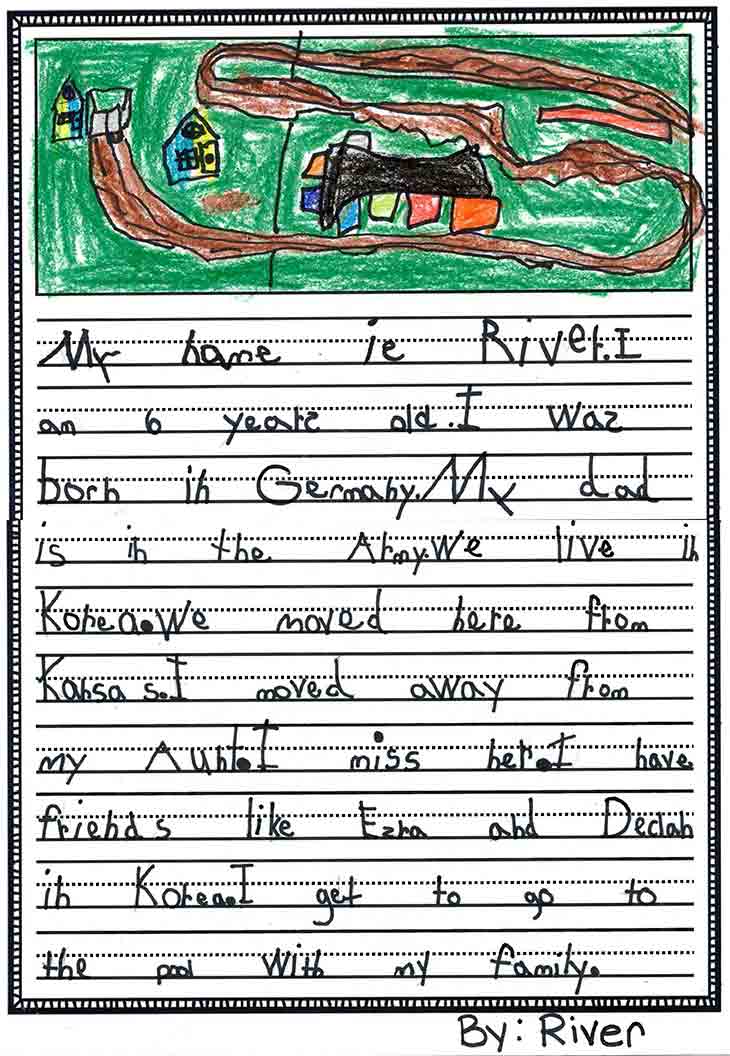 My name is River. I
am 6 years old. I was
born in Germany. My dad
is in the Army. We live in
Korea. We moved here from
Kansas. I moved away from
my Aunt. I miss her. I have
friends like Ezra and Declan
in Korea. I get to go to
the pool with my family.
By: River